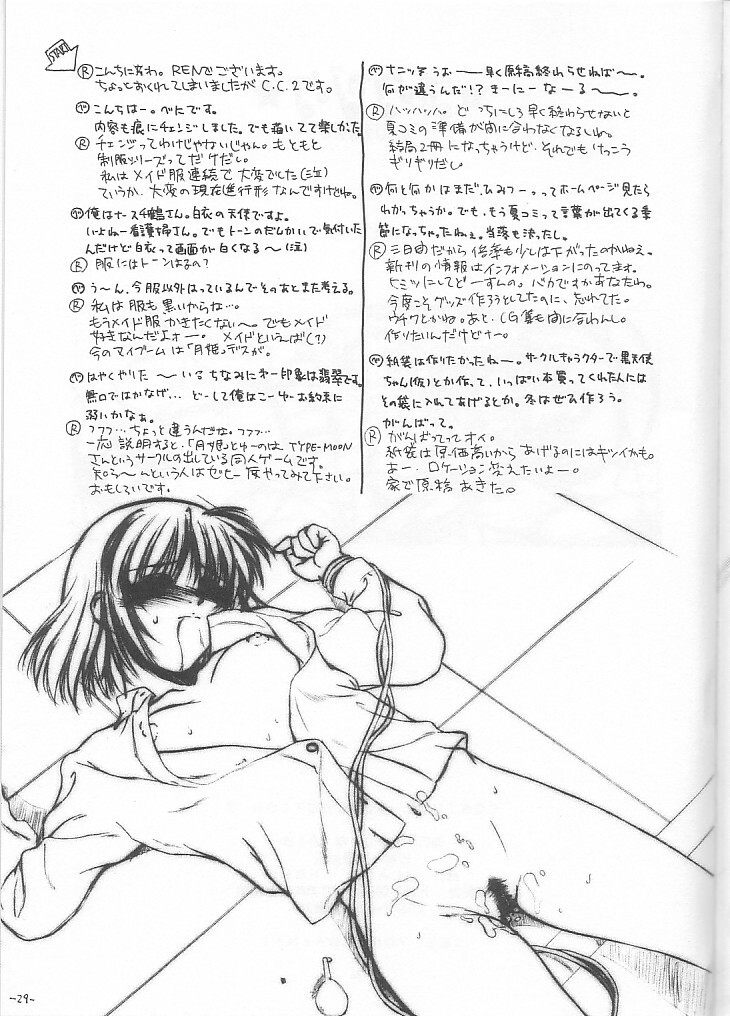 START
Ⓡ こんちにわ。RENでございます。
ちょっとおくれてしまいましたが C.C.2です。
こんちはー。べにです。
内容も痕にチェンジしました。でも描いてて楽しかった。
Ⓡ チェンジってわけじゃないじゃん。もともと
制服シリーズってだケだい。
私はメイド服連続で大変でした(泣)
ていうか、大変の現在進行形なんですけどね。
俺はナース千鶴さん。白衣の天使ですよ。
いよねー看護婦さん。でもトーンのだんかいで気付いた
んだけど白衣って画面が白くなる〜(泣)
Ⓡ 服にはトーンはるの?
う〜ん、今服以外はっているんでそのあとまた考える。
Ⓡ 私は服も黒いからな…。
もうメイド服かきたくない〜。でもメイド
好きなんだよォー。メイドといえば(?)
今のマイブームは「月姫」デスが。
はやくやりた〜いる ちなみに第一印象は翡翠です。
無口ではかなげ… どーして俺はこーゆーお約束に
弱いかなぁ。
Ⓡ フフフ…ちょっと違うんだな。フフフ…
一応説明すると、「月姫」とゆーのは、TYPE-MOON
さんというサークルの出している同人ゲームです。
知らん〜んという人はゼッヒー度やってみて下さい。
おもしろいです。
ナニッ!うおーー早く原稿終わらせねば〜。
何が違うんだ!?きーにーなーる〜ー〜。
Ⓡ ハッハッハ。どっちにしろ早く終わらせないと
夏コミの準備が間に合わなくなるしね。
結局2冊になっちゃうけど、それでもけっこう
ギリギリだし
何と何かはまだひみつー。ってホームページ見たら
わかっちゃうか。でも、もう夏コミって言葉が出てくる季
節になっちゃったねぇ。当落も決ったし。
Ⓡ 三日間だから倍率も少しは下がったのかねぇ。
新刊の情報はインフォメーションにのってます。
ヒミツにしてどーすんの。バカですかあなたわ。
今度こそグッズ作ろうとしてたのに、忘れてた。
ウチワとかね。あと、CG集も間に合わんし。
作りたいんだけどナー。
紙袋は作りたかったねー。サークルキャラクターで黒天使
ちゃん(仮)とか作って、いっぱい本買ってくれた人には
その袋に入れてあげるとか。冬はぜひ作ろう。
がんばって。
Ⓡ がんばってってオイ。
紙袋は原価高いからあげるのにはキツイかも。
あー、ロケーション変えたいよー。
家で原稿あきた。
-29-